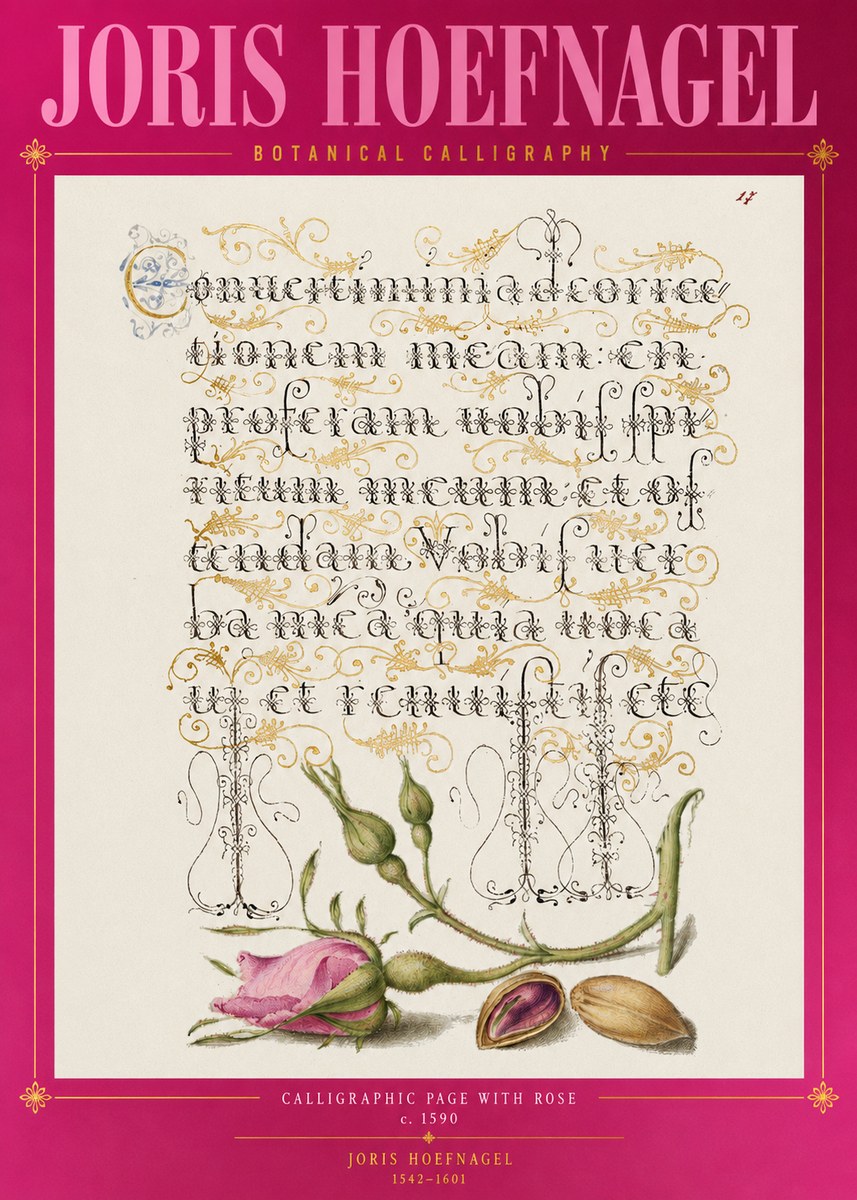 JORIS HOEFNAGEL
BOTANICAL CALLIGRAPHY
17
Conuertimini ad corree
tionem meam: en
proferam uobiſ ſpi
ritum meum: et oſ
tendam Vobiſ uer
ba mea quia uoca
ui et renuiſtiſ ete
CALLIGRAPHIC PAGE WITH ROSE
c. 1590
JORIS HOEFNAGEL
1542–1601